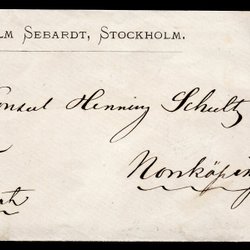 LM SEBARDT, STOCKHOLM.
onsul Henning Schultz
Norrköping